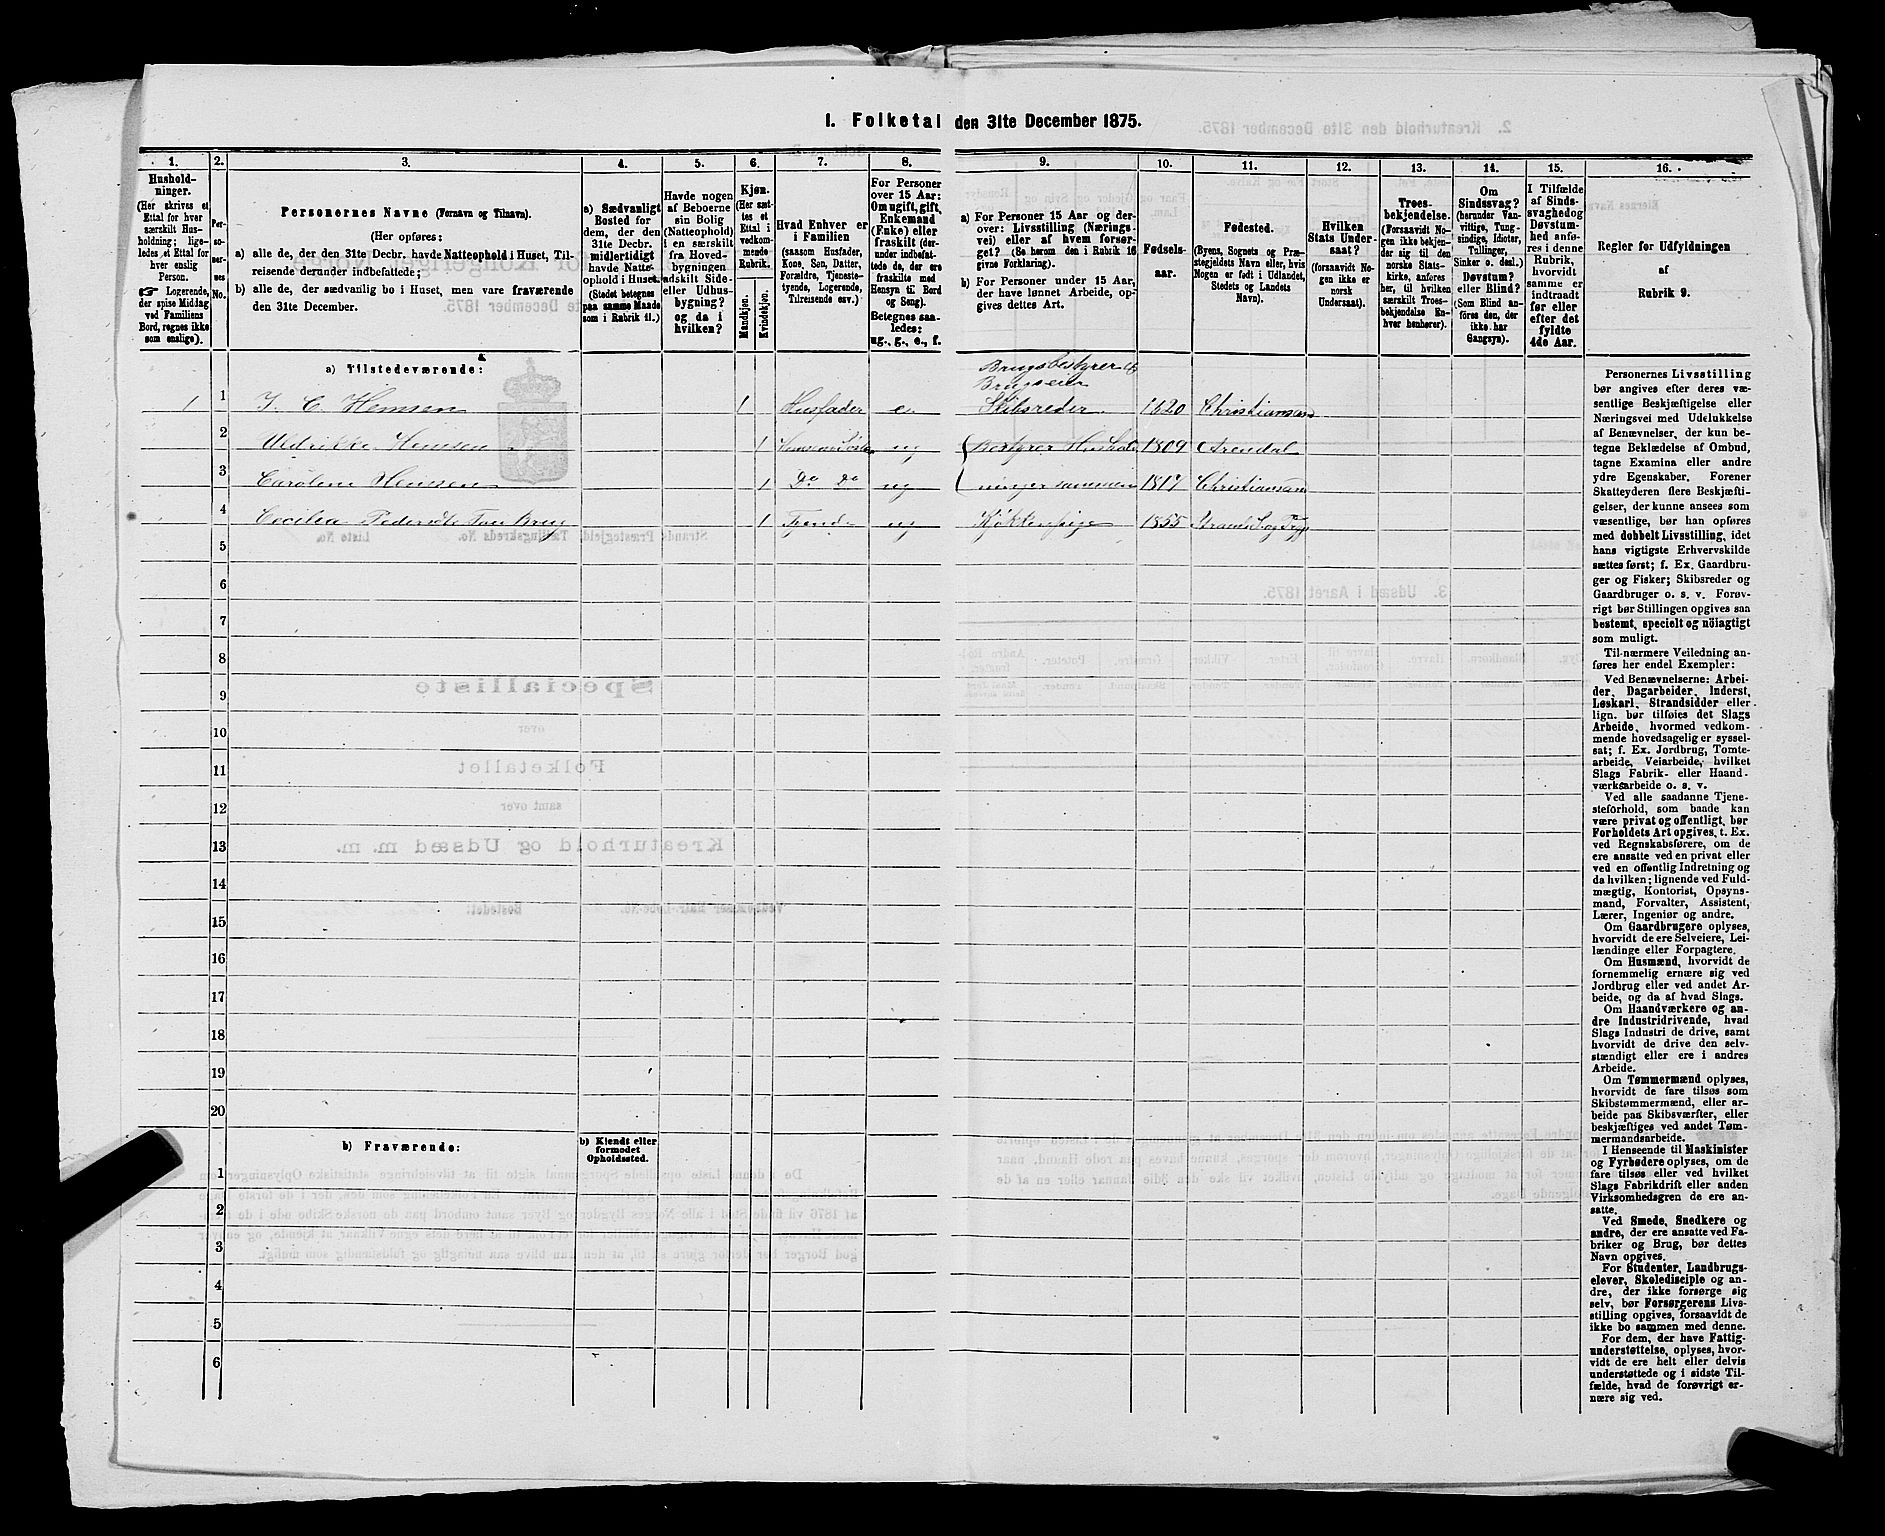 I. Folketal den 31te December 1875.
1.
Hushold-
ninger.
(Her skrives et
Ettal for hver
særskilt Hus-
holdning; lige-
ledes et Ettal for
hver enslig
Person.
Logerende,
der spise Middag
ved Familiens
Bord, regnes ikke
som enslige).
2.
Per-
so-
ner-
nes
No.
3.
Personernes Navne (Fornavn og Tilnavn).
(Her opføres:
a) alle de, der den 31te Decbr. havde Natteophold i Huset, Til-
reisende derunder indbefattede;
b) alle de, der sædvanlig bo i Huset, men vare fraværende
den 31te December.
4.
a) Sædvanligt
Bosted for
dem, der den
31te Decbr.
midlertidigt
havde Natte-
ophold i Huset.
(Stedet betegnes
paa samme Maade
som i Rubrik 11.)
5.
Havde nogen
af Beboerne
sin Bolig
(Natteophold)
i en særskilt
fra Hoved-
bygningen
adskilt Side-
eller Udhus-
bygning?
og da i
hvilken?
6.
Kjøn.
(Her sæt-
tes et
Ettal i
vedkom-
mende
Rubrik.
Mandkjøn.
Kvindekjøn.
7.
Hvad Enhver er
i Familien
(saasom Husfader,
Kone, Søn, Datter,
Forældre, Tjeneste-
tyende, Logerende,
Tilreisende osv.)
8.
For Personer
over 15 Aar:
Om ugift, gift,
Enkemand
(Enke) eller
fraskilt (der-
under indbefat-
tede de, der ere
fraskilte med
Hensyn til Bord
og Seng).
Betegnes saa-
ledes:
ug., g., e., f.
9.
a) For Personer 15 Aar og der-
over: Livsstilling (Nærings-
vei) eller af hvem forsør-
get? (Se herom den i Rubrik 16
givne Forklaring).
b) For Personer under 15 Aar,
der have lønnet Arbeide, op-
gives dettes Art.
10.
Fødsels-
aar.
11.
Fødested.
(Byens, Sognets og Præ-
stegjeldets Navn eller, hvis
Nogen er født i Udlandet,
Stedets og Landets
Navn).
12.
Hvilken
Stats Under-
saat?
(forsaavidt No-
gen ikke er
norsk
Undersaat).
13.
Troes-
bekjendelse.
(Forsaavidt No-
gen ikke bekjen-
der sig til den
norske Stats-
kirke, anføres
her, til hvilken
særskilt Troes-
bekjendelse En-
hver henhører).
14.
Om
Sindssvag?
(herunder Van-
vittige, Tung-
sindige, Idioter,
Tullinger,
Sinker o. desl.)
Døvstum?
eller Blind?
(Som Blind an-
føres den, der
ikke har
Gangsyn).
15.
I Tilfælde
af Sinds-
svaghed og
Døvstum-
hed anfø-
res i denne
Rubrik,
hvorvidt
samme er
indtraadt
før eller
efter det
fyldte
4de Aar.
16.
Regler for Udfyldningen
af
Rubrik 9.
a) Tilstedeværende:
Brugsbestyrer &
Brugseier
1 1 J. C. Hemsen 1 Husfader e Skibsreder 1820 Christiansand
2 Uldrikke Hemsen 1 ug Bestyrer Hushold 1809 Arendal
3 Caroline Hemsen 1 Do Do ug ninger sammen 1817 Christiansand
4 Cecilia 1 ug Kjøkkenpige 1855
5
6
7
8
9
10
11
12
13
14
15
16
17
18
19
20
b) Fraværende:
b) Kjendt eller
formodet
Opholdssted.
1
2
3
4
5
6
Personernes Livsstilling
bør angives efter deres væ-
sentlige Beskjæftigelse eller
Næringsvei med Udelukkelse
af Benævnelser, der kun be-
tegne Beklædelse af Ombud,
tagne Examina eller andre
ydre Egenskaber. Forener
Skatteyderen flere Beskjæfti-
gelser, der kunne ansees som
væsentlige, bør han opføres
med dobbelt Livsstilling, idet
hans vigtigste Erhvervskilde
sættes først; f. Ex. Gaardbru-
ger og Fisker; Skibsreder og
Gaardbruger o. s. v. Forøv-
rigt bør Stillingen opgives saa
bestemt, specielt og nöiagtigt
som muligt.
Til nærmere Veiledning an-
føres her endel Exempler:
Ved Benævnelserne: Arbei-
der, Dagarbeider, Inderst,
Løskarl, Strandsidder eller
lign. bør tilføies det Slags
Arbeide, hvormed vedkom-
mende hovedsagelig er syssel-
sat; f. Ex. Jordbrug, Tomte-
arbeide, Veiarbeide, hvilket
Slags Fabrik- eller Haand-
værksarbeide o. s. v.
Ved alle saadanne Tjene-
steforhold, som baade kan
være privat og offentligt, bør
Forholdets Art opgives, t. Ex.
ved Regnskabsførere, om de
ere ansatte ved en privat eller
ved en offentlig Indretning og
da hvilken; lignende ved Fuld-
mægtig, Kontorist, Opsyns-
mand, Forvalter, Assistent,
Lærer, Ingeniør og andre.
Om Gaardbrugere oplyses,
hvorvidt de ere Selveiere, Lei-
lændinge eller Forpagtere.
Om Husmænd, hvorvidt de
fornemmelig ernære sig ved
Jordbrug eller ved andet Ar-
beide, og da af hvad Slags.
Om Haandværkere og an-
dre Industridrivende, hvad
Slags Industri de drive, samt
hvorvidt de drive den selv-
stændigt eller ere i andres
Arbeide.
Om Tømmermænd oplyses,
hvorvidt de fare tilsøs som
Skibstømmermænd, eller ar-
beide paa Skibsværfter, eller
beskjæftiges ved andet Tøm-
mermandsarbeide.
I Henseende til Maskinister
og Fyrbødere oplyses, om de
fare tilsøs eller ved hvilket
Slags Fabrikdrift eller anden
Virksomhedsgren de ere an-
satte.
Ved Smede, Snedkere og
andre, der ere ansatte ved Fa-
briker og Brug, bør dettes
Navn opgives.
For Studenter, Landbrugs-
elever, Skoledisciple og an-
dre, der ikke forsørge sig
selv, bør Forsørgerens Livs-
stilling opgives, forsaavidt de
ikke bo sammen med denne.
For dem, der have Fattig-
understøttelse, oplyses, hvor-
vidt de ere helt eller delvis
understøttede og i sidste Til-
fælde, hvad de forøvrigt er-
nære sig ved.